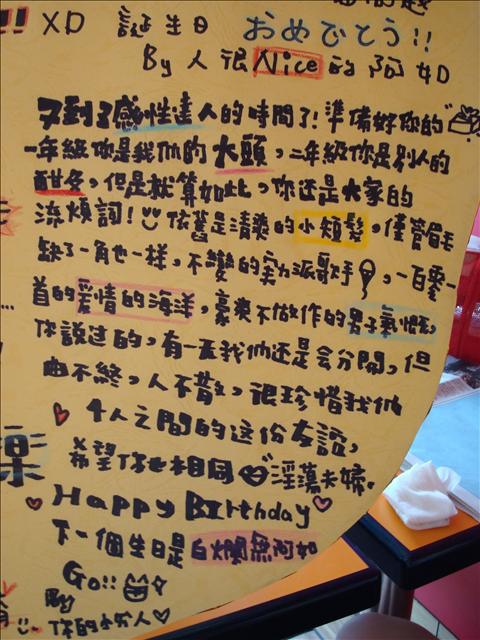 !! XD 誕生日 おめでとう!!
By 人很Nice的阿如
又到了感性達人的時間了!準備好你的
一年級你是我們的大頭,二年級你是別人的
甜冬,但是就算如此,你還是大家的
流煩詞!依舊是清爽的小短髮,僅管眉毛
缺了一角也一樣,不變的實力派歌手,一百零一
首的愛情的海洋,豪爽不做作的男子氣慨,
你說过的,有一天我们还是会分開,但
曲不終,人不散,很珍惜我们
4人之間的这份友誼,
希望你也相同 淫蕩夫婦.
樂
Happy Birthday
下一個生日是白爛無阿如
Go!!
你的小穷人